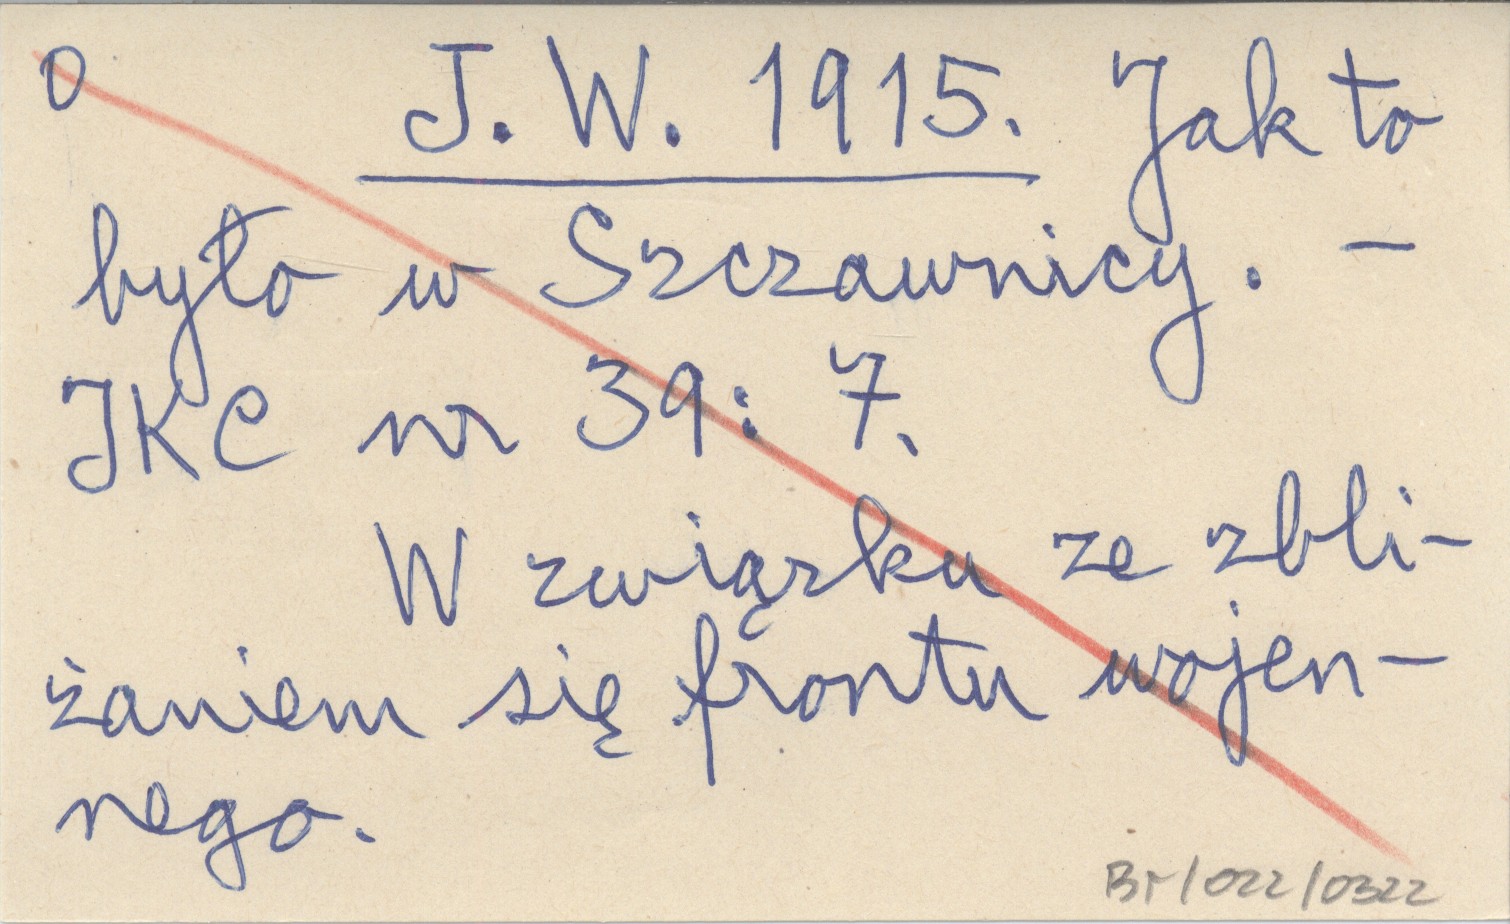 0 J. W. 1915. Jak to
było w Szczawnicy. –
JKC nr 39: 7.
W związku ze zbli-
żaniem się frontu wojen-
nego.
Br/022/0322